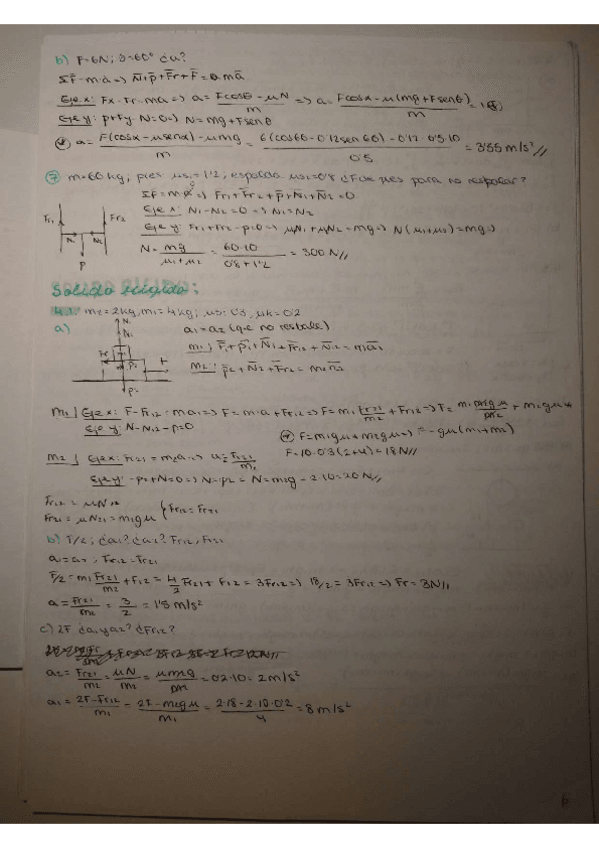 b) F=6N; θ=60° ¿a?
ΣF=m·a => N+p+Fr+F=m·a
Eje x: Fx-Fr=ma => a= Fcosθ-μN / m => a= Fcosα-μ(mg+Fsenθ) / m
Eje y: p+Fy-N=0 => N=mg+Fsenθ
a= F(cosα-μsenα)-μmg / m = 6(cos60-0'12sen60)-0'12·0'5·10 / 0'5 = 3'55 m/s²//
7 m=60kg; pies μs1=1'2, espalda μs2=0'8 ¿F de pies para no resbalar?
ΣF=m·a => Fr1+Fr2+p+N1+N2=0
Eje x: N1-N2=0 => N1=N2
Eje y: Fr1+Fr2-p=0 => μN1+μN2=mg => N(μ1+μ2)=mg =>
N= mg / μ1+μ2 = 60·10 / 0'8+1'2 = 300N//
Fr1 Fr2 N p
Solido rígido:
4.1. m2=2kg, m1=4kg; μs=0'3, μk=0'2
a) a1=a2 (que no resbale)
m1: F1+p1+N1+Fr12+N12=m1a1
m2: p2+N2+Fr21=m2a2
m1 | Eje x: F-Fr12=ma1 => F=m·a+Fr12 => F=m1 Fr21/m2 +Fr12 => F= m1 m2gμ/m2 + m2gμ
Eje y: N-N12-p=0
F=m1gμ+m2gμ => F=gμ(m1+m2)
F=10·0'3(2+4)=18N//
m2 | Eje x: Fr21=m2a => a=Fr21/m2
Eje y: -p2+N=0 => N=p2 = N=m2g=2·10=20N//
Fr12=μN12
Fr21=μN21=m2gμ } Fr12=Fr21
b) F/2; ¿a1? ¿a2? Fr12, Fr21
a1=a2, Fr12=Fr21
F/2=m1 Fr21/m2 +Fr12= 4/2 Fr21+Fr12=3Fr12 => 18/2=3Fr12 => Fr=3N//
a= Fr21/m2 = 3/2 = 1'5 m/s²
c) 2F ¿a1 y a2? ¿Fr12?
a2= Fr21/m2 = μN/m2 = μm2g/m2 =0'2·10=2m/s²
a1= 2F-Fr12 / m1 = 2F-m2gμ / m1 = 2·18-2·10·0'2 / 4 =8m/s²